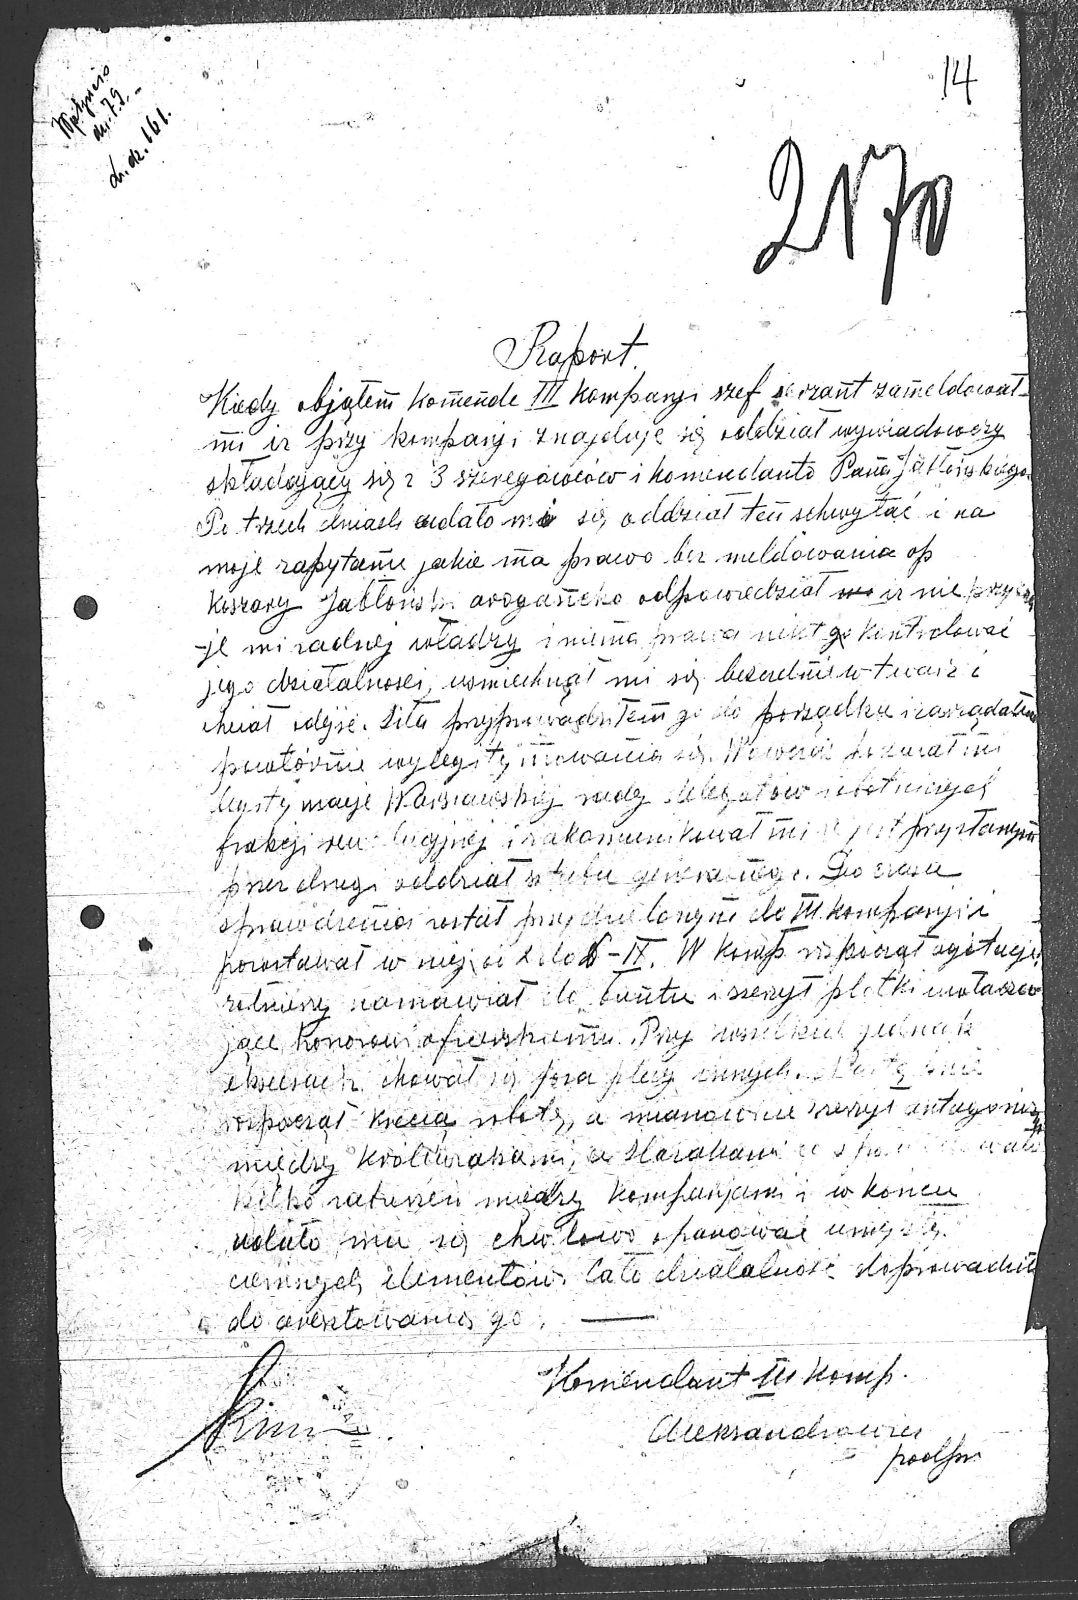 14
Wpłynęło
dn. 7 9.
L. dz. 161.
2170
Raport.
Kiedy objąłem komendę III kompanji szef serżant zameldował
mi iż przy kompanji znajduje się oddział wywiadowczy
składający się z 3 szeregowców i komendanta Pana Jabłońskiego.
Po trzech dniach udało mi się oddział ten schwytać i na
moje zapytanie jakie ma prawo bez meldowania op
koszary Jabłoński arogancko odpowiedział iż nie przyzna
je mi żadnej władzy i niema prawa nikt go kontrolować
jego działalności, uśmiechnął mi się bezczelnie w twarz i
chciał odejść. Siłą przyprowadziłem go do porządku i zarządałem
powtórnie wylegitymowania się. Wówczas pokazał mi
legitymacje Warszawskiej rady delegatów robotniczych
frakcji rewolucyjnej i zakomunikował mi iż jest przysłanym
przez drugi oddział sztabu generalnego. Do czasu
sprawdzenia został przydzielonym do III kompanji i
pozostawał w niej od 2 do 6-IX. W komp. rozpoczął agitację,
żołnierzy namawiał do buntu i szerzył plotki uwłacza
jące honorowi oficerskiemu. Przy wszelkich jednak
ekscesach chował się poza plecy innych.
rozpoczął krecią robotę, a mianowicie szerzył antagonizm
między Królewiakami, a Ślązakami co
kilka zatargów między kompanjami i w końcu
udało mu się chwilowo opanować umysły
ciemnych elementów. Cała działalność doprowadziła
do aresztowania go. —
Komendant III komp.
Aleksandrowicz
podpor.